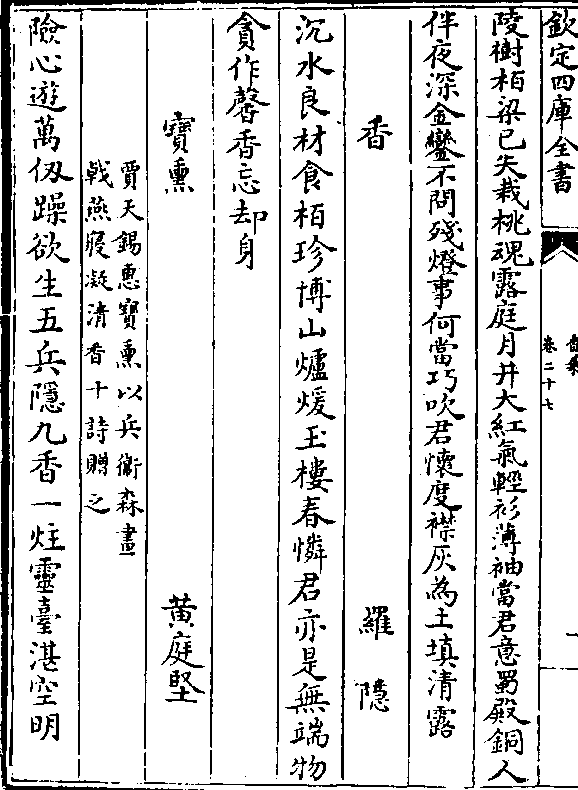 欽定四庫全書
香乘
卷二十七
陵樹栢梁已失栽桃魂露庭月井大紅氣輕衫薄袖當君意蜀殿銅人
伴夜深金鑾不問殘燈事何當巧吹君懷度襟灰為土填清露
香　羅隱
沉水良材食栢珍博山爐煖玉樓春憐君亦是無端物
貪作馨香忘却身
寶熏　黃庭堅
賈天錫惠寶熏以兵衞森畫
戟燕寢凝清香十詩贈之
險心遊萬仭躁欲生五兵隱几香一炷靈臺湛空明